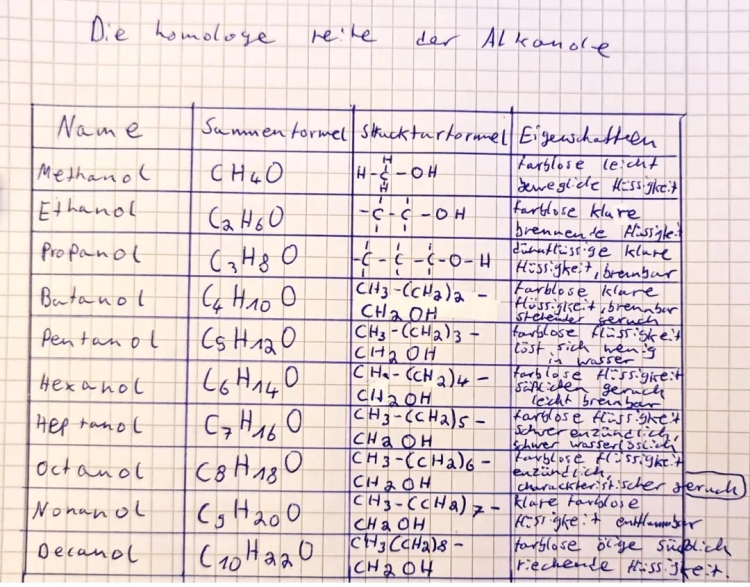 Die homologe reihe der Alkanole
Name Summenformel Strukturformel Eigenschaften
Methanol CH4O H-C-OH H H farblose leicht bewegliche flüssigkeit
Ethanol C2H6O -C-C-OH farblose klare brennende flüssigkeit
Propanol C3H8O -C-C-C-O-H dünnflüssige klare flüssigkeit, brennbar
Butanol C4H10O CH3-(CH2)2-CH2OH farblose klare flüssigkeit, brennbar stechender geruch
Pentanol C5H12O CH3-(CH2)3-CH2OH farblose flüssigkeit löst sich wenig in wasser
Hexanol C6H14O CH3-(CH2)4-CH2OH farblose flüssigkeit süßlichen geruch leicht brennbar
Heptanol C7H16O CH3-(CH2)5-CH2OH farblose flüssigkeit schwer enzündlich, schwer wasserlöslich
Octanol C8H18O CH3-(CH2)6-CH2OH farblose flüssigkeit enzündlich, charackteristischer geruch
Nonanol C9H20O CH3-(CH2)7-CH2OH klare farblose flüssigkeit entflammbar
Decanol C10H22O CH3(CH2)8-CH2OH farblose ölige süßlich riechende flüssigkeit.